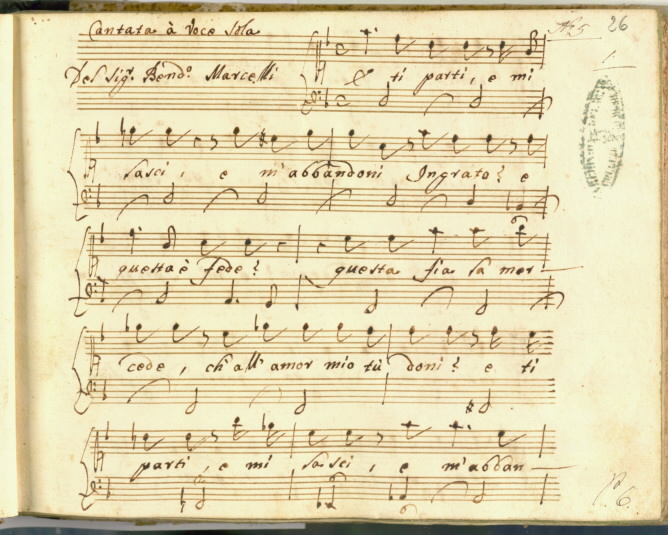 Cantata à Voce Sola
26
1.
Del Sigr. Bendo. Marcelli
E ti parti, e mi
lasci, e m'abbandoni Ingrato? e
questa è fede? questa fia la mer-
cede, ch'all'amor mio tù doni? e ti
parti, e mi lasci, e m'abban-
6.